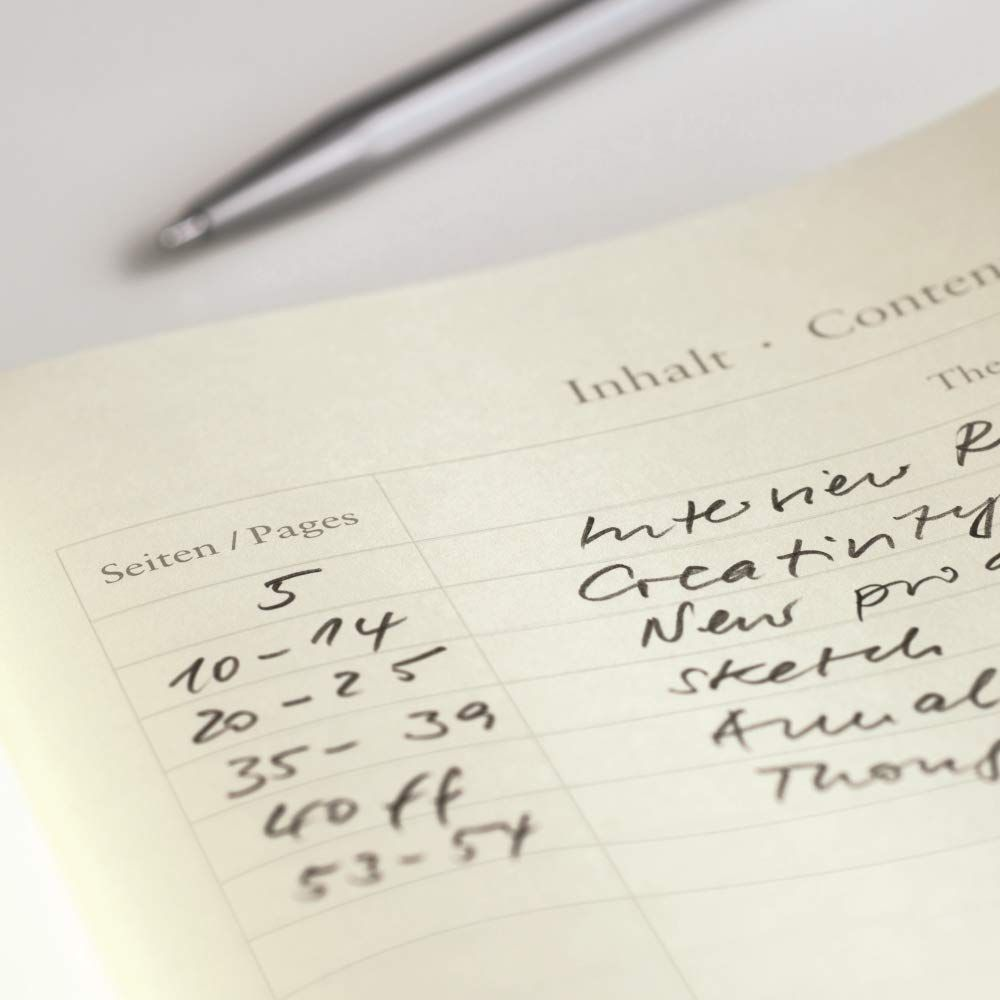 Inhalt · Conten
Seiten / Pages The
5 Interview R
10 - 14 Creativity
20 - 25 New prod
35 - 39 sketch
40 ff Annual
53 - 54 Thoug